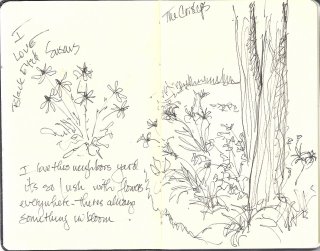 I
LOVE
Black Eyed Susans
I love this neighbors yard
its so lush with flowers
everywhere - theres always
something in bloom.
The